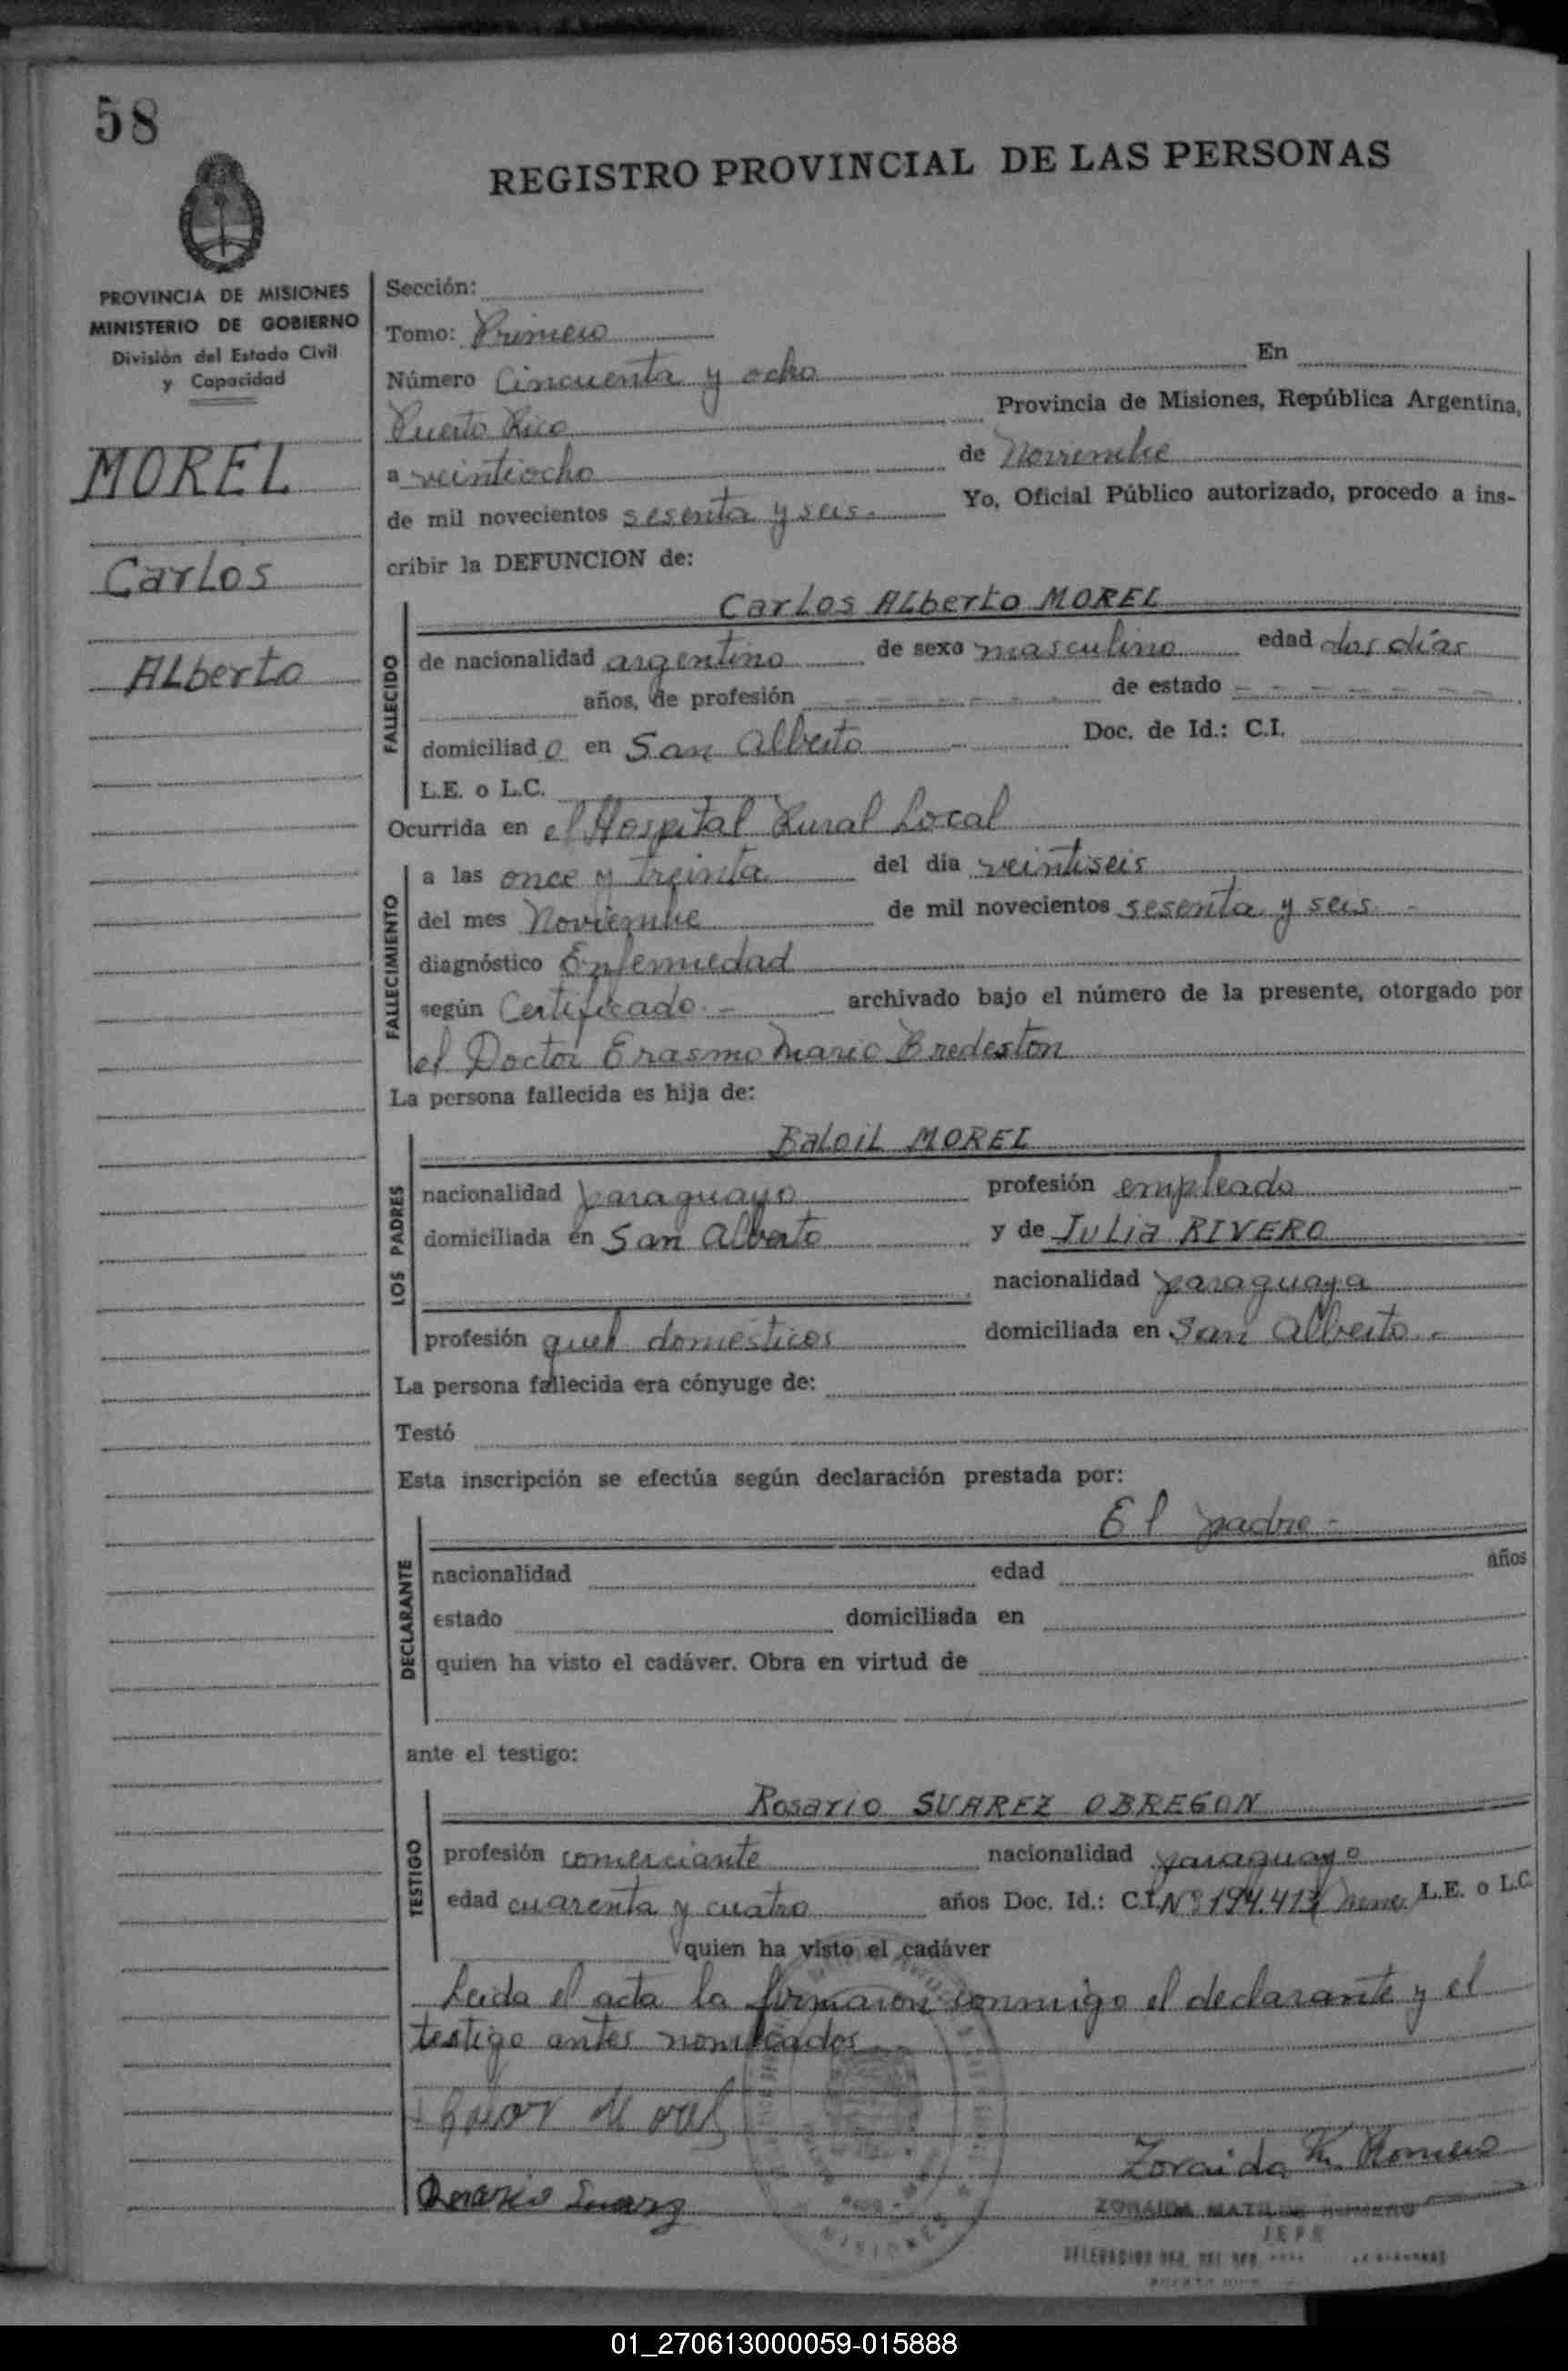 58
REGISTRO PROVINCIAL DE LAS PERSONAS
PROVINCIA DE MISIONES
MINISTERIO DE GOBIERNO
División del Estado Civil
y Capacidad
MOREL
Carlos
ALberto
Sección:
Tomo: Primero
Número Cincuenta y ocho En
Puerto Rico Provincia de Misiones, República Argentina,
a veintiocho de Noviembre
de mil novecientos sesenta y seis.- Yo, Oficial Público autorizado, procedo a ins-
cribir la DEFUNCION de:
Carlos ALberto MOREL
FALLECIDO
de nacionalidad argentino de sexo masculino edad dos días
años, de profesión - - - - - de estado - - - - - -
domiciliado en San Alberto Doc. de Id.: C.I.
L.E. o L.C.
Ocurrida en el Hospital Rural Local
FALLECIMIENTO
a las once y treinta del día veintiseis
del mes Noviembre de mil novecientos sesenta y seis.-
diagnóstico Enfermedad
según Certificado.- archivado bajo el número de la presente, otorgado por
el Doctor Erasmo Mario Bredeston
La persona fallecida es hija de:
LOS PADRES
MOREL
nacionalidad paraguayo profesión empleado
domiciliada en San Alberto y de Julia RIVERO
nacionalidad paraguaya
profesión queh domésticos domiciliada en San Alberto.-
La persona fallecida era cónyuge de:
Testó
Esta inscripción se efectúa según declaración prestada por:
El padre-
DECLARANTE
nacionalidad edad años
estado domiciliada en
quien ha visto el cadáver. Obra en virtud de
ante el testigo:
TESTIGO
Rosario SUAREZ OBREGON
profesión comerciante nacionalidad paraguayo
edad cuarenta y cuatro años Doc. Id.: C.I. Nº L.E. o L.C.
quien ha visto el cadáver
Leida el acta la firmaron conmigo el declarante y el
testigo antes nombrados.-
Zoraida M. Romero
Rosario Suarez
ZORAIDA MATILDE ROMERO
JEFE
MISIONES
01_270613000059-015888